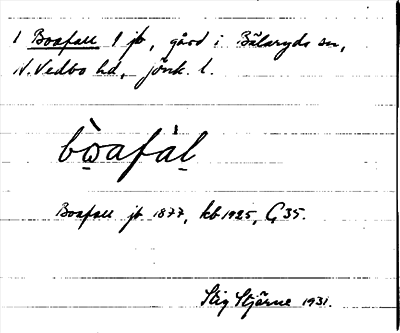 1 Boafall 1 jb, gård i Bälaryds sn,
N. Vedbo hd, jönk. l.
bòafàl
Boafall jb 1877, kb 1925, Ç 35.
Stig Stjärne 1931.